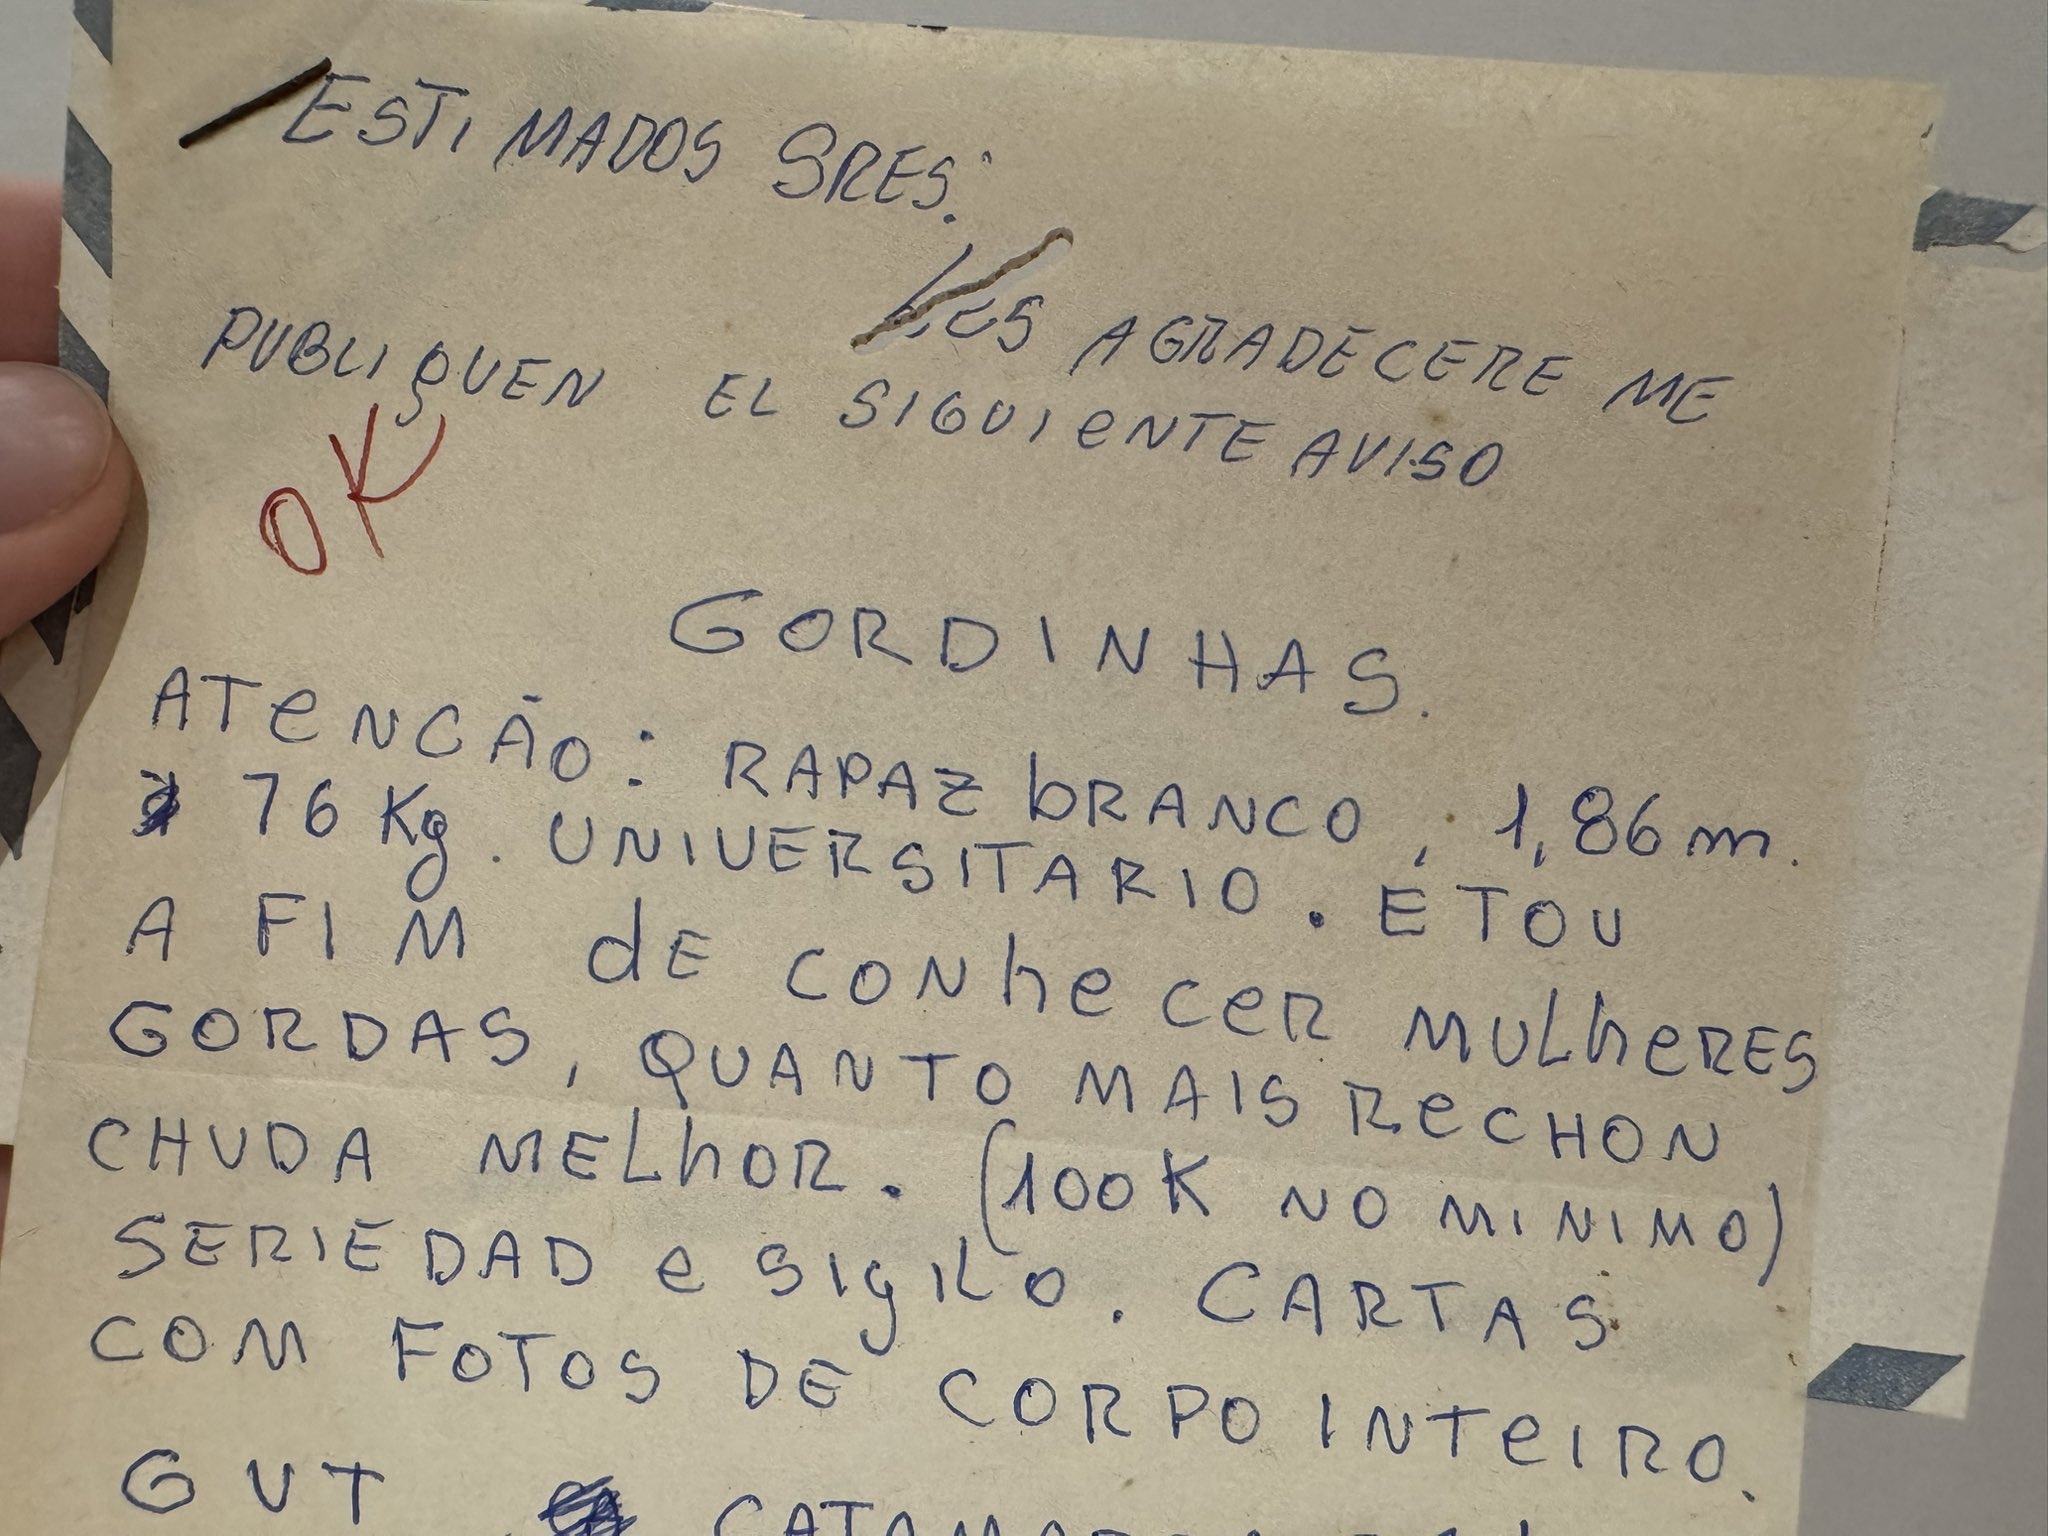 ESTIMADOS SRES:
LES AGRADECERE ME
PUBLIQUEN EL SIGUIENTE AVISO
OK
GORDINHAS.
ATENCÃO: RAPAZ BRANCO, 1,86 m.
76 Kg. UNIVERSITARIO. ETOU
A FIM dE CONheceR MULheRES
GORDAS, QUANTO MAIS RECHON
CHUDA MELhOR. (100K NO MINIMO)
SERIEDAD e SIgILO. CARTAS
COM FOTOS DE CORPO INTEIRO.
GUT